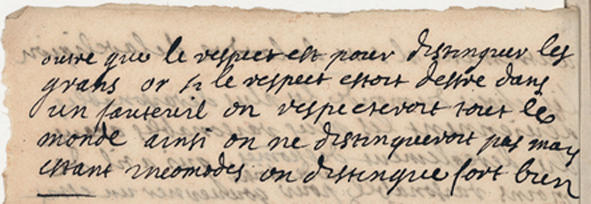 outre que le respect est pour distinguer les
grans or si le respect estoit destre dans
un fauteuil on respecteroit tout le
monde ainsi on ne distingueroit pas mais
estant incomodes on distingue fort bien